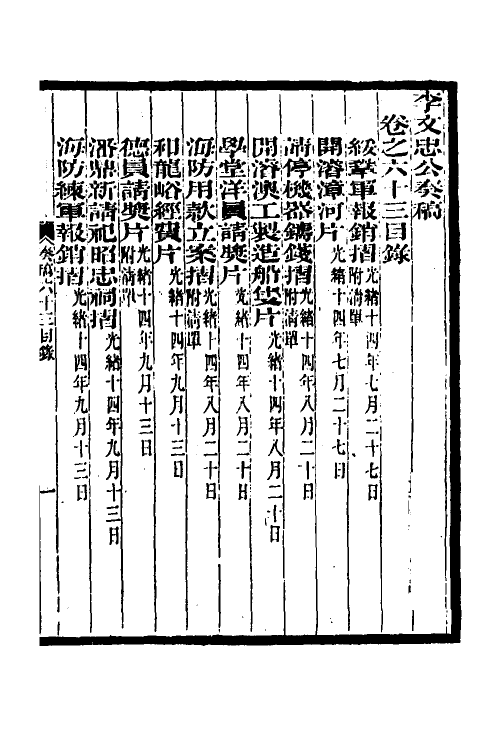 李文忠公奏稿
卷之六十三目錄
綏鞏軍報銷摺附清單 光緒十四年七月二十七日
開濬漳河片 光緒十四年七月二十七日
請停機器鑄錢摺附清單 光緒十四年八月二十日
開濬澳工製造船隻片 光緒十四年八月二十日
學堂洋員請獎片 光緒十四年八月二十日
海防用款立案摺附清單 光緒十四年八月二十日
和龍峪經費片 光緒十四年九月十三日
德員請獎片附清單 光緒十四年九月十三日
潘鼎新請祀昭忠祠摺 光緒十四年九月十三日
海防練軍報銷摺 光緒十四年九月十三日
奏稿六十三目錄 一